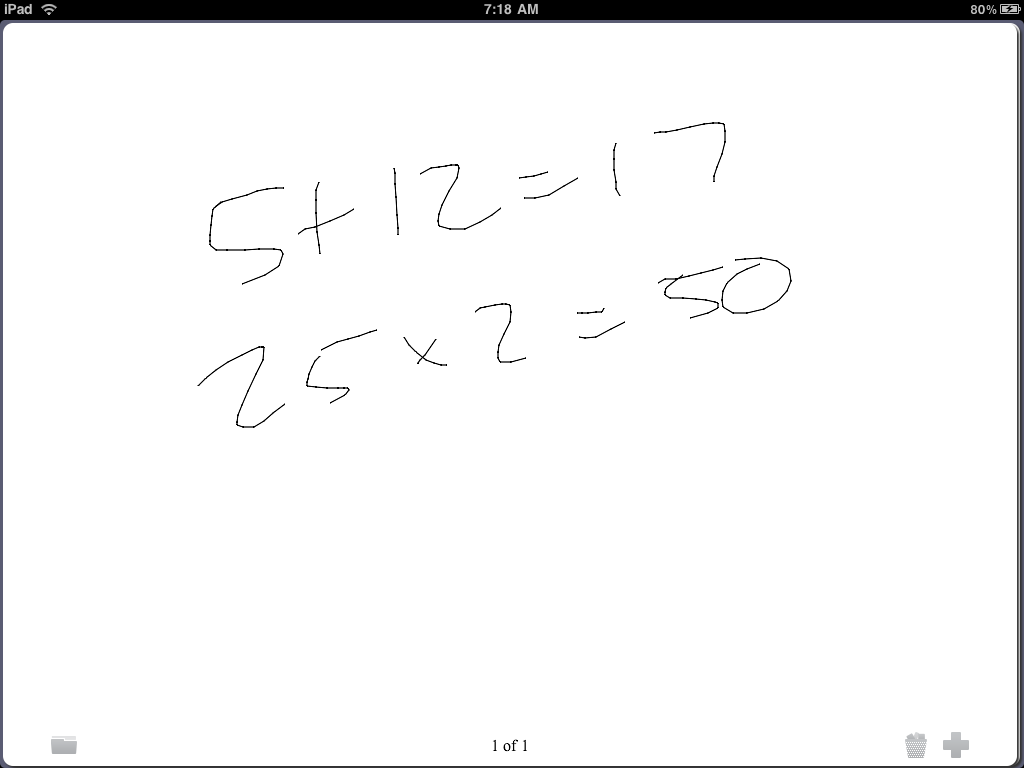 iPad 7:18 AM 80%
5+12=17
25×2=50
1 of 1